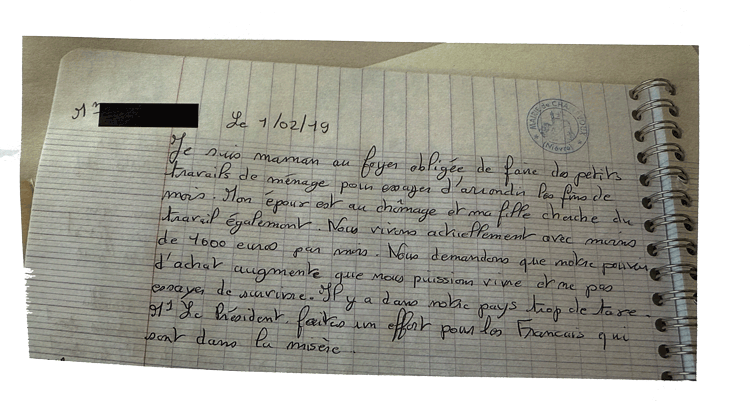 Mme
Le 1/02/19
MAIRIE de CHA
(Nièvre)
Je suis maman au foyer obligée de faire des petits
travails de ménage pour essayer d'arrondir les fins de
mois. Mon époux est au chômage et ma fille cherche du
travail également. Nous vivons actuellement avec moins
de 1000 euros par mois. Nous demandons que notre pouvoir
d'achat augmente que nous puission vivre et ne pas
essayer de survivre. Il y a dans notre pays trop de taxe.
Mr Le Président, faites un effort pour les Francais qui
sont dans la misère.